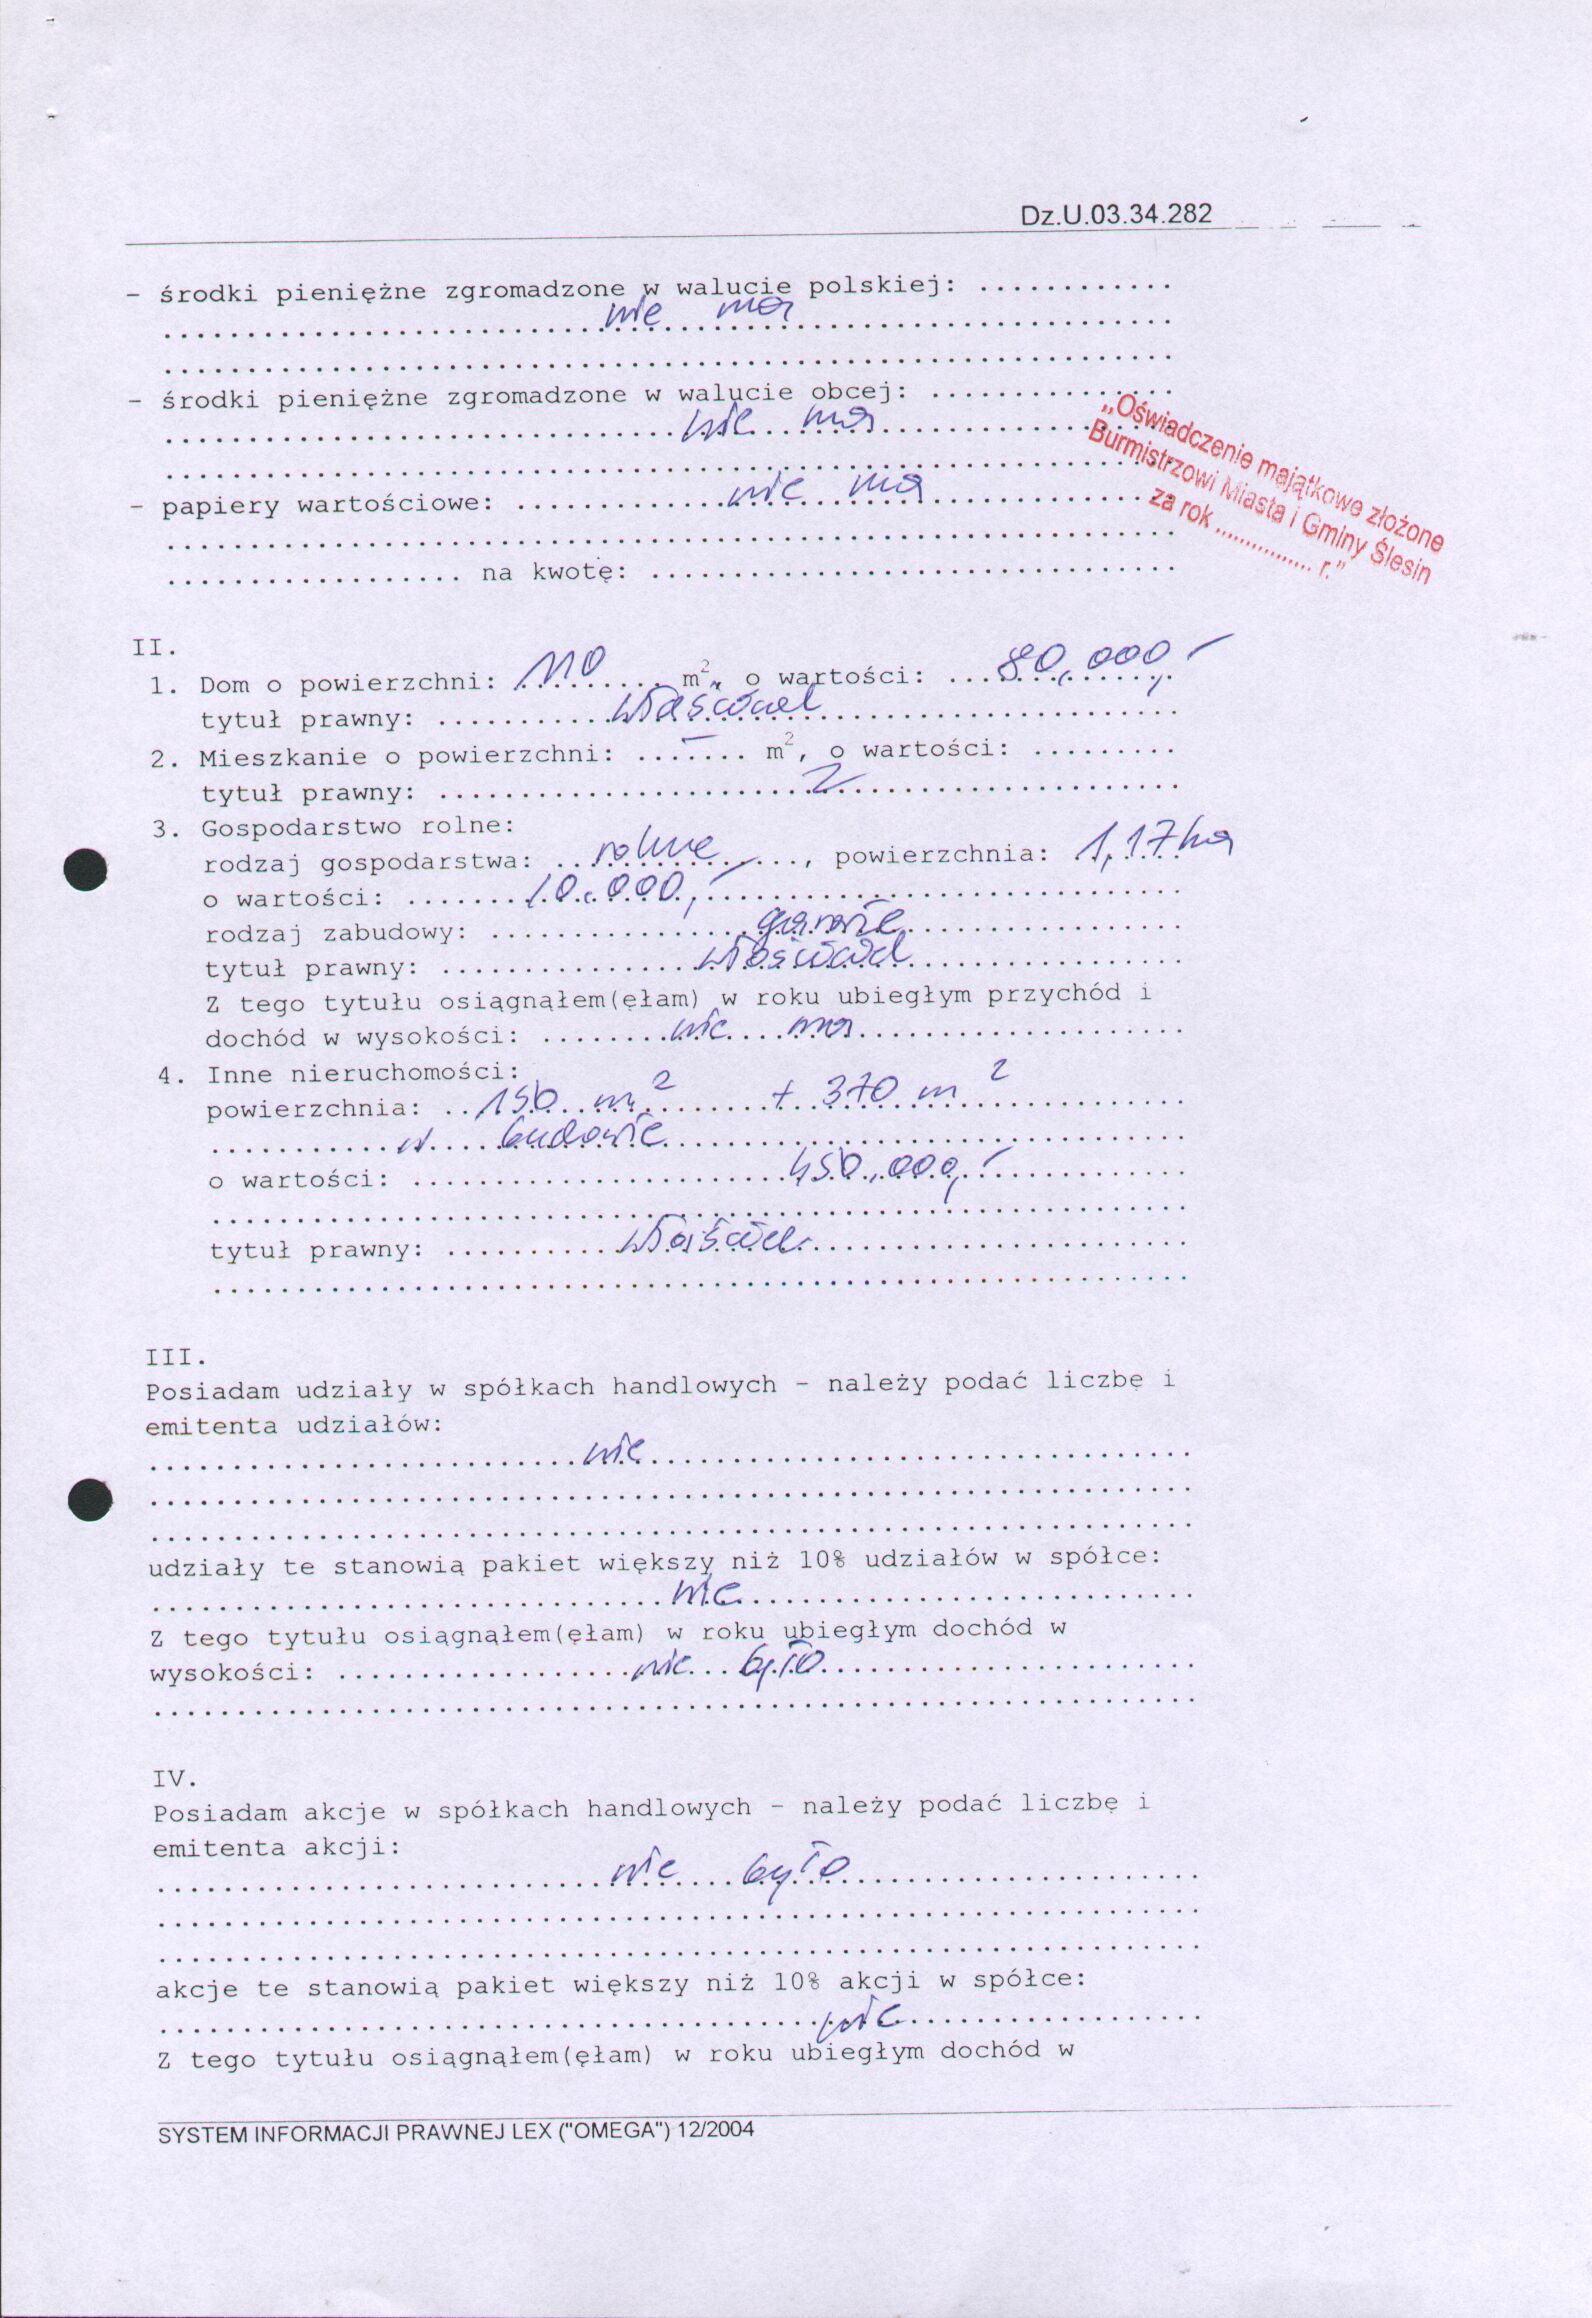 Dz.U.03.34.282
- środki pieniężne zgromadzone w walucie polskiej: ............
nie ma
- środki pieniężne zgromadzone w walucie obcej: ............
nie ma
- papiery wartościowe: nie ma
na kwotę: ............
„Oświadczenie majątkowe złożone
Burmistrzowi Miasta i Gminy Ślesin
za rok ............... r."
II.
1. Dom o powierzchni: 110 m², o wartości: 80.000,-
tytuł prawny: właściciel
2. Mieszkanie o powierzchni: - m², o wartości: .........
tytuł prawny:
3. Gospodarstwo rolne:
rodzaj gospodarstwa: rolne, powierzchnia: 1,17 ha
o wartości: 10.000,-
rodzaj zabudowy:
tytuł prawny: właściciel
Z tego tytułu osiągnąłem(ęłam) w roku ubiegłym przychód i
dochód w wysokości: nie ma
4. Inne nieruchomości:
powierzchnia: 150 m² + 370 m²
w budowie
o wartości: 450.000,-
tytuł prawny: właściciel
III.
Posiadam udziały w spółkach handlowych - należy podać liczbę i
emitenta udziałów:
nie
udziały te stanowią pakiet większy niż 10% udziałów w spółce:
nie
Z tego tytułu osiągnąłem(ęłam) w roku ubiegłym dochód w
wysokości: nie było
IV.
Posiadam akcje w spółkach handlowych - należy podać liczbę i
emitenta akcji:
nie było
akcje te stanowią pakiet większy niż 10% akcji w spółce:
nie
Z tego tytułu osiągnąłem(ęłam) w roku ubiegłym dochód w
SYSTEM INFORMACJI PRAWNEJ LEX ("OMEGA") 12/2004